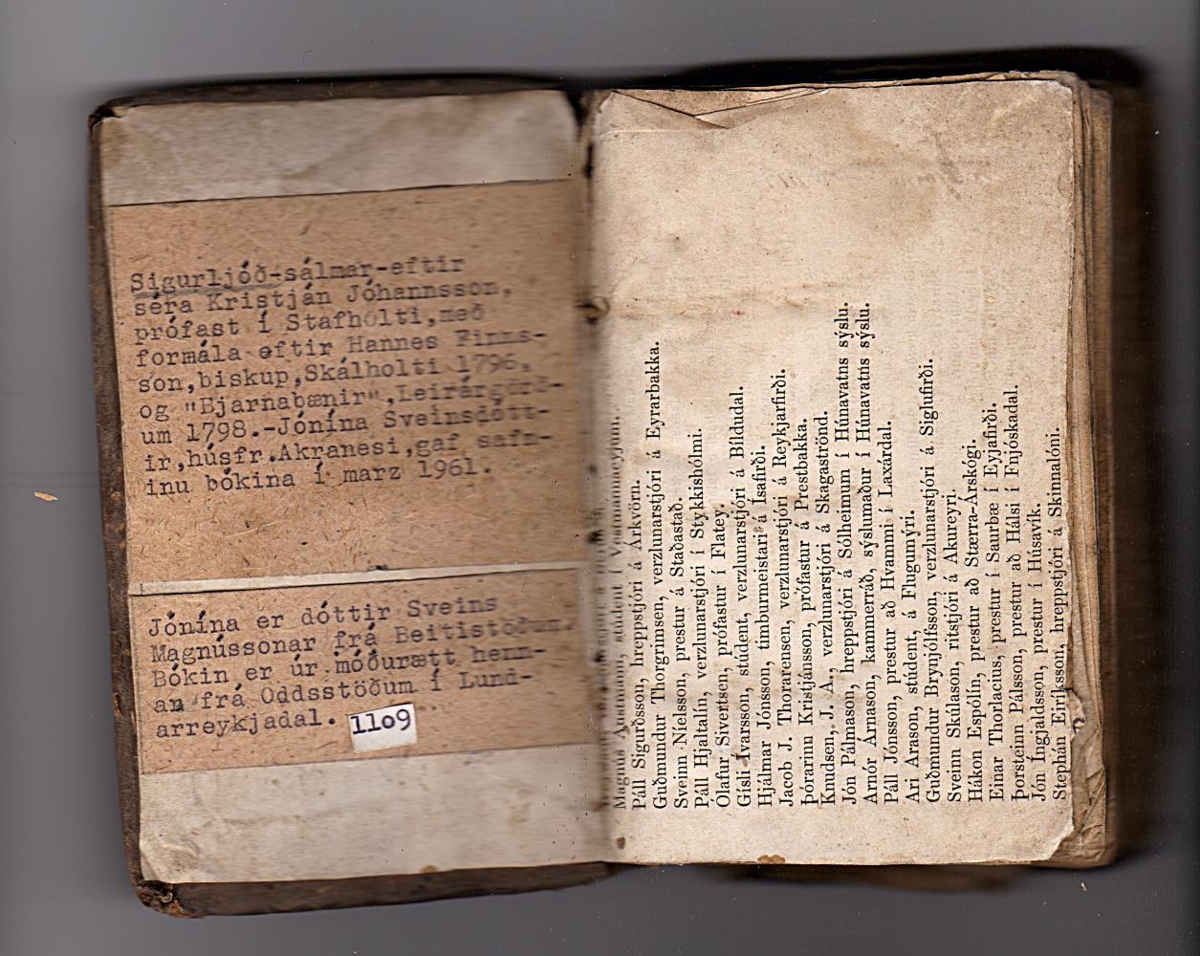 Sigurljóð-sálmar-eftir
séra Kristján Jóhannsson,
prófast í Stafholti,með
formála eftir Hannes Finns-
son,biskup,Skálholti 1796,
og "Bjarnabænir",Leirárgörð-
um 1798.-Jónína Sveinsdótt-
ir,húsfr.Akranesi,gaf safn-
inu bókina í marz 1961.
Jónína er dóttir Sveins
Magnússonar frá Beitistöðum.
Bókin er úr móðurætt henn-
ar frá Oddsstöðum í Lund-
arreykjadal.
1109
Magnús Austmann, stúdent í Vestmanneyjum.
Páll Sigurðsson, hreppstjóri á Árkvörn.
Guðmundur Thorgrimsen, verzlunarstjóri á Eyrarbakka.
Sveinn Níelsson, prestur á Staðastað.
Páll Hjaltalín, verzlunarstjóri í Stykkishólmi.
Ólafur Sivertsen, prófastur í Flatey.
Gísli Ívarsson, stúdent, verzlunarstjóri á Bíldudal.
Hjálmar Jónsson, timburmeistari á Ísafirði.
Jacob J. Thorarensen, verzlunarstjóri á Reykjarfirði.
Þórarinn Kristjánsson, prófastur á Prestbakka.
Knudsen, J. A., verzlunarstjóri á Skagaströnd.
Jón Pálmason, hreppstjóri á Sólheimum í Húnavatns sýslu.
Arnór Árnason, kammerráð, sýslumaður í Húnavatns sýslu.
Páll Jónsson, prestur að Hvammi í Laxárdal.
Ari Arason, stúdent, á Flugumýri.
Guðmundur Brynjólfsson, verzlunarstjóri á Siglufirði.
Sveinn Skúlason, ritstjóri á Akureyri.
Hákon Espólín, prestur að Stærra-Árskógi.
Einar Thorlacius, prestur í Saurbæ í Eyjafirði.
Þorsteinn Pálsson, prestur að Hálsi í Fnjóskadal.
Jón Íngjaldsson, prestur í Húsavík.
Stephán Eiríksson, hreppstjóri á Skinnalóni.